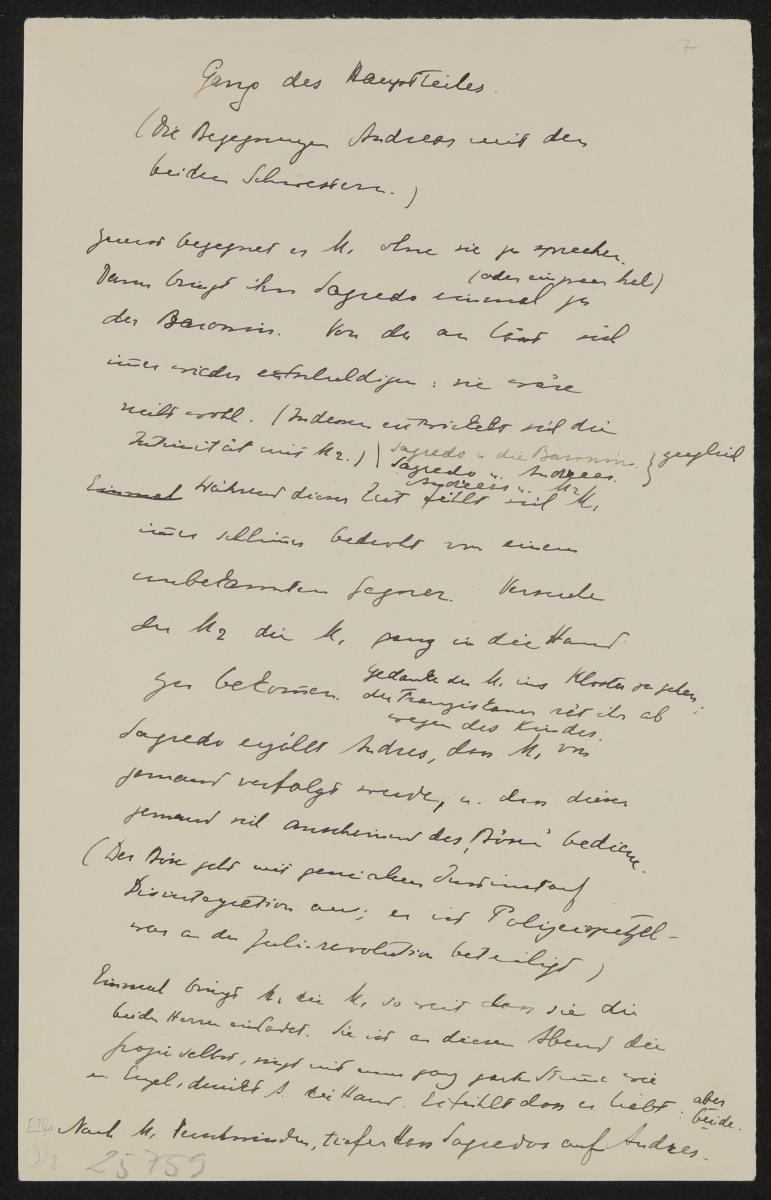 7
Gang des Hauptteiles.
(Die Begegnungen Andreas mit den
beiden Schwestern.)
Zuerst begegnet er M₁ ohne sie zu sprechen.
(oder ein paar mal)
Dann bringt ihn Sagredo einmal zu
der Baronin. Von da an lässt sich
im̄er wieder entschuldigen: sie wäre
nicht wohl. (Indessen entwickelt sich die
Intimität mit M2.)
Sagredo u die Baronin.
Sagredo u. Andreas.
Andreas u. M2
zugleich
Einmal Während dieser Zeit fühlt sich M₁
im̄er schlim̄er bedroht von einem
unbekannten Gegner. Versuche
der M2 die M₁ ganz in die Hand
zu bekom̄en.
Gedanke der M₁ ins Kloster zu gehen;
der Franziskaner rät ihr ab
wegen des Kindes.
Sagredo erzählt Andres, dass M₁ von
jemand verfolgt werde, u. dass dieser
jemand sich anscheinend des „Bösen" bediene.
(Der Böse geht mit Instinct auf
Disintegration aus; er ist Polizeispitzel –
war an der Juli-revolution beteiligt)
Einmal bringt M₂ die M₁ so weit dass sie die
beiden Herren einladet. Sie ist an diesem Abend die
Grazie selbst, singt mit einer ganz zarten Stim̄e wie
ein Engel, drückt A. die Hand. Er fühlt dass er liebt: aber
beide.
Nach M₁ Verschwinden, tiefer Hass Sagredos auf Andres.
E IV
8
25759